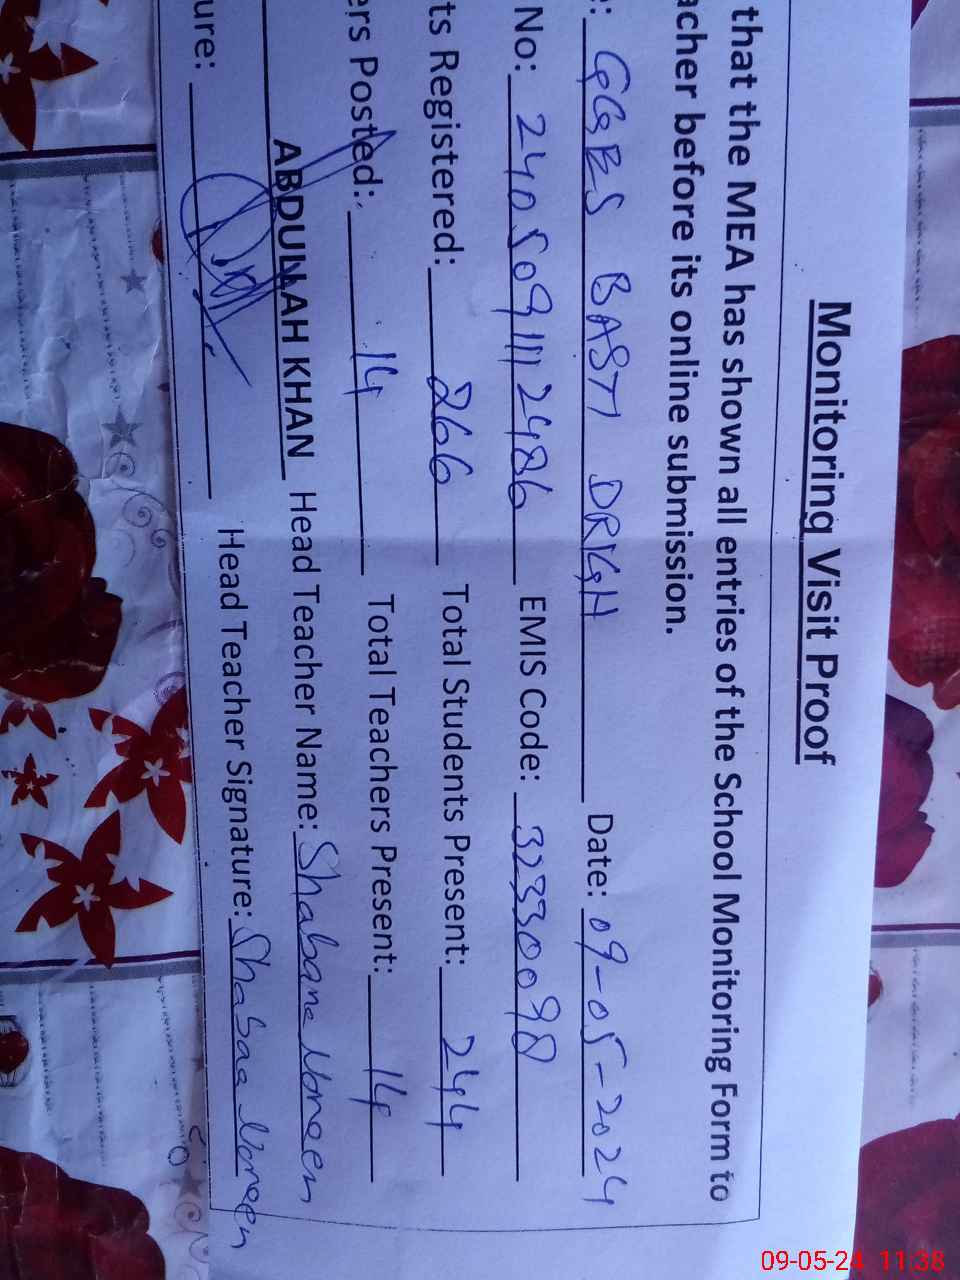 Monitoring Visit Proof
that the MEA has shown all entries of the School Monitoring Form to
acher before its online submission.
e: GGES BASTI DRIGH Date: 09-05-2024
No: 2405091112486 EMIS Code: 32330098
ts Registered: 266 Total Students Present: 244
ers Posted: 14 Total Teachers Present: 14
ABDULLAH KHAN Head Teacher Name: Shabana Noreen
ure: Head Teacher Signature: Shabana Noreen
09-05-24 11:38